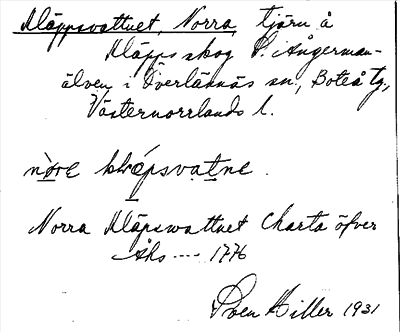 Kläppsvattnet, Norra, tjärn å
Kläpps skog S. i Ångerman-
älven i Överlännäs sn, Boteå tg,
Västernorrlands l.
nòrε klǽpsvatne.
Norra Kläpswattnet Charta öfver
Åhs ---- 1776
Sven Hiller 1931